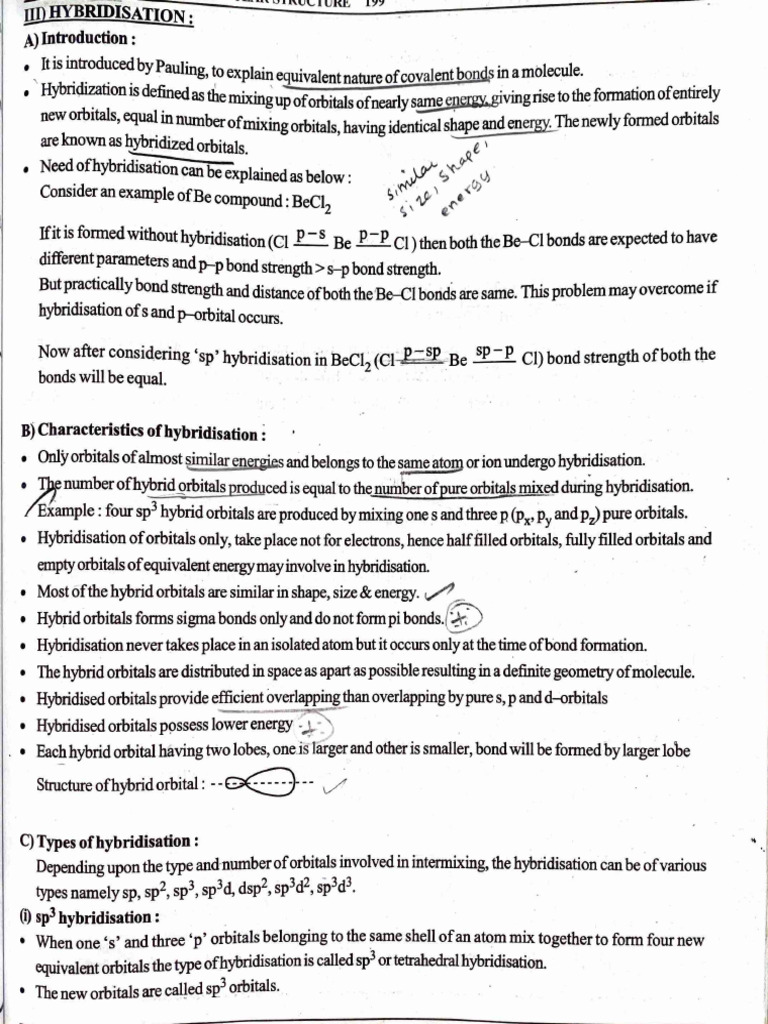 STRUCTURE 199
III) HYBRIDISATION :
A) Introduction :
• It is introduced by Pauling, to explain equivalent nature of covalent bonds in a molecule.
• Hybridization is defined as the mixing up of orbitals of nearly same energy, giving rise to the formation of entirely
new orbitals, equal in number of mixing orbitals, having identical shape and energy. The newly formed orbitals
are known as hybridized orbitals.
• Need of hybridisation can be explained as below :
similar
size, shape,
energy
Consider an example of Be compound : BeCl₂
If it is formed without hybridisation (Cl p–s Be p–p Cl) then both the Be–Cl bonds are expected to have
different parameters and p–p bond strength > s–p bond strength.
But practically bond strength and distance of both the Be–Cl bonds are same. This problem may overcome if
hybridisation of s and p–orbital occurs.
Now after considering ‘sp’ hybridisation in BeCl₂ (Cl p–sp Be sp–p Cl) bond strength of both the
bonds will be equal.
B) Characteristics of hybridisation :
• Only orbitals of almost similar energies and belongs to the same atom or ion undergo hybridisation.
• The number of hybrid orbitals produced is equal to the number of pure orbitals mixed during hybridisation.
Example : four sp³ hybrid orbitals are produced by mixing one s and three p (pₓ, p_y and p_z) pure orbitals.
• Hybridisation of orbitals only, take place not for electrons, hence half filled orbitals, fully filled orbitals and
empty orbitals of equivalent energy may involve in hybridisation.
• Most of the hybrid orbitals are similar in shape, size & energy.
• Hybrid orbitals forms sigma bonds only and do not form pi bonds.
• Hybridisation never takes place in an isolated atom but it occurs only at the time of bond formation.
• The hybrid orbitals are distributed in space as apart as possible resulting in a definite geometry of molecule.
• Hybridised orbitals provide efficient overlapping than overlapping by pure s, p and d–orbitals
• Hybridised orbitals possess lower energy
• Each hybrid orbital having two lobes, one is larger and other is smaller, bond will be formed by larger lobe
Structure of hybrid orbital :
C) Types of hybridisation :
Depending upon the type and number of orbitals involved in intermixing, the hybridisation can be of various
types namely sp, sp², sp³, sp³d, dsp², sp³d², sp³d³.
(i) sp³ hybridisation :
• When one ‘s’ and three ‘p’ orbitals belonging to the same shell of an atom mix together to form four new
equivalent orbitals the type of hybridisation is called sp³ or tetrahedral hybridisation.
• The new orbitals are called sp³ orbitals.